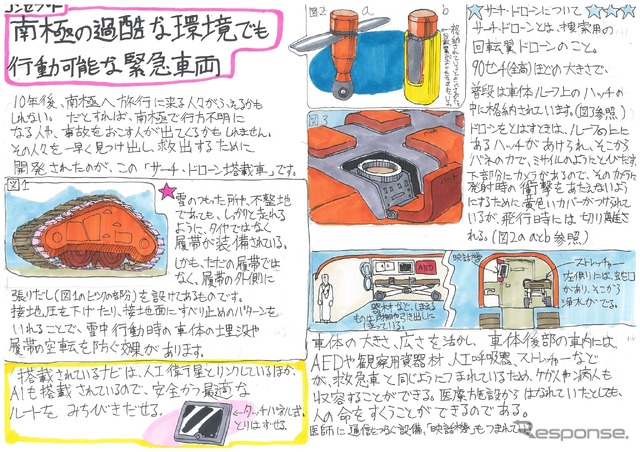 コンセプト
南極の過酷な環境でも
行動可能な緊急車両
10年後、南極へ旅行に来る人がふえるかも
しれない。だとすれば、南極で行方不明に
なる人や、事故をおこす人が出てくるかもしれません。
その人々を一早く見つけ出し、救出するために
開発されたのが、この「サーチ・ドローン搭載車」です。
図1
雪のつもった所や、不整地
であっても、しっかりと走れる
ように、タイヤではなく
履帯が装備されている。
しかも、ただの履帯では
なく、履帯の外側に
張りだし(図1のピンクの部分)を設けてあるものです。
接地圧を下げたり、接地面にすべり止めのパターンを
いれることで、雪中行動時の車体の埋没や
履帯の空転を防ぐ効果があります。
搭載されているナビは、人工衛星とリンクしているほか
AIも搭載されているので、安全かつ最適な
ルートをみちびきだせる。
←タッチパネル式。
とりはずせる。
図2
a
b
図3
★サーチ・ドローンについて
サーチ・ドローンとは、捜索用の
回転翼ドローンのこと。
90センチ(全高)ほどの大きさで、
普段は車体ルーフ上のハッチの
中に格納されています。(図3参照)
ドローンをとばすときは、ルーフの上に
あるハッチがあけられ、そこから
バネの力で、ミサイルのようにとびだす。
下部分にカメラがあるので、そのカメラに
発射時の衝撃をあたえないよう
にするために黄色いカバーがつけられて
いるが、飛行時には切り離さ
れる。(図2aとb参照)
AED
映話機
ストレッチャー
左側には、蛇口
があり、そこから
浄水がでる。
器材など、しまえる
ものは内部や引き出しに
入っている。
車体の大きさ、広さを活かし、車体後部の車内には、
AEDや観察用資器材、人工呼吸器、ストレッチャーなど
が、救急車と同じようにつまれているため、ケガ人や病人も
収容することができる。医療施設からはなれていたとしても、
人の命をすくうことができるのである。
医師に通信をつなぐ設備、「映話機」もつまれて
Response.